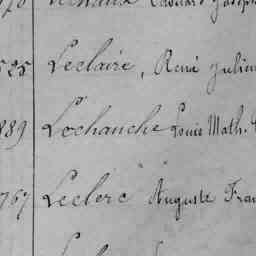 525 Leclaire, René Julien
889 Lechanche Louis Math.
767 Leclerc Auguste Fran